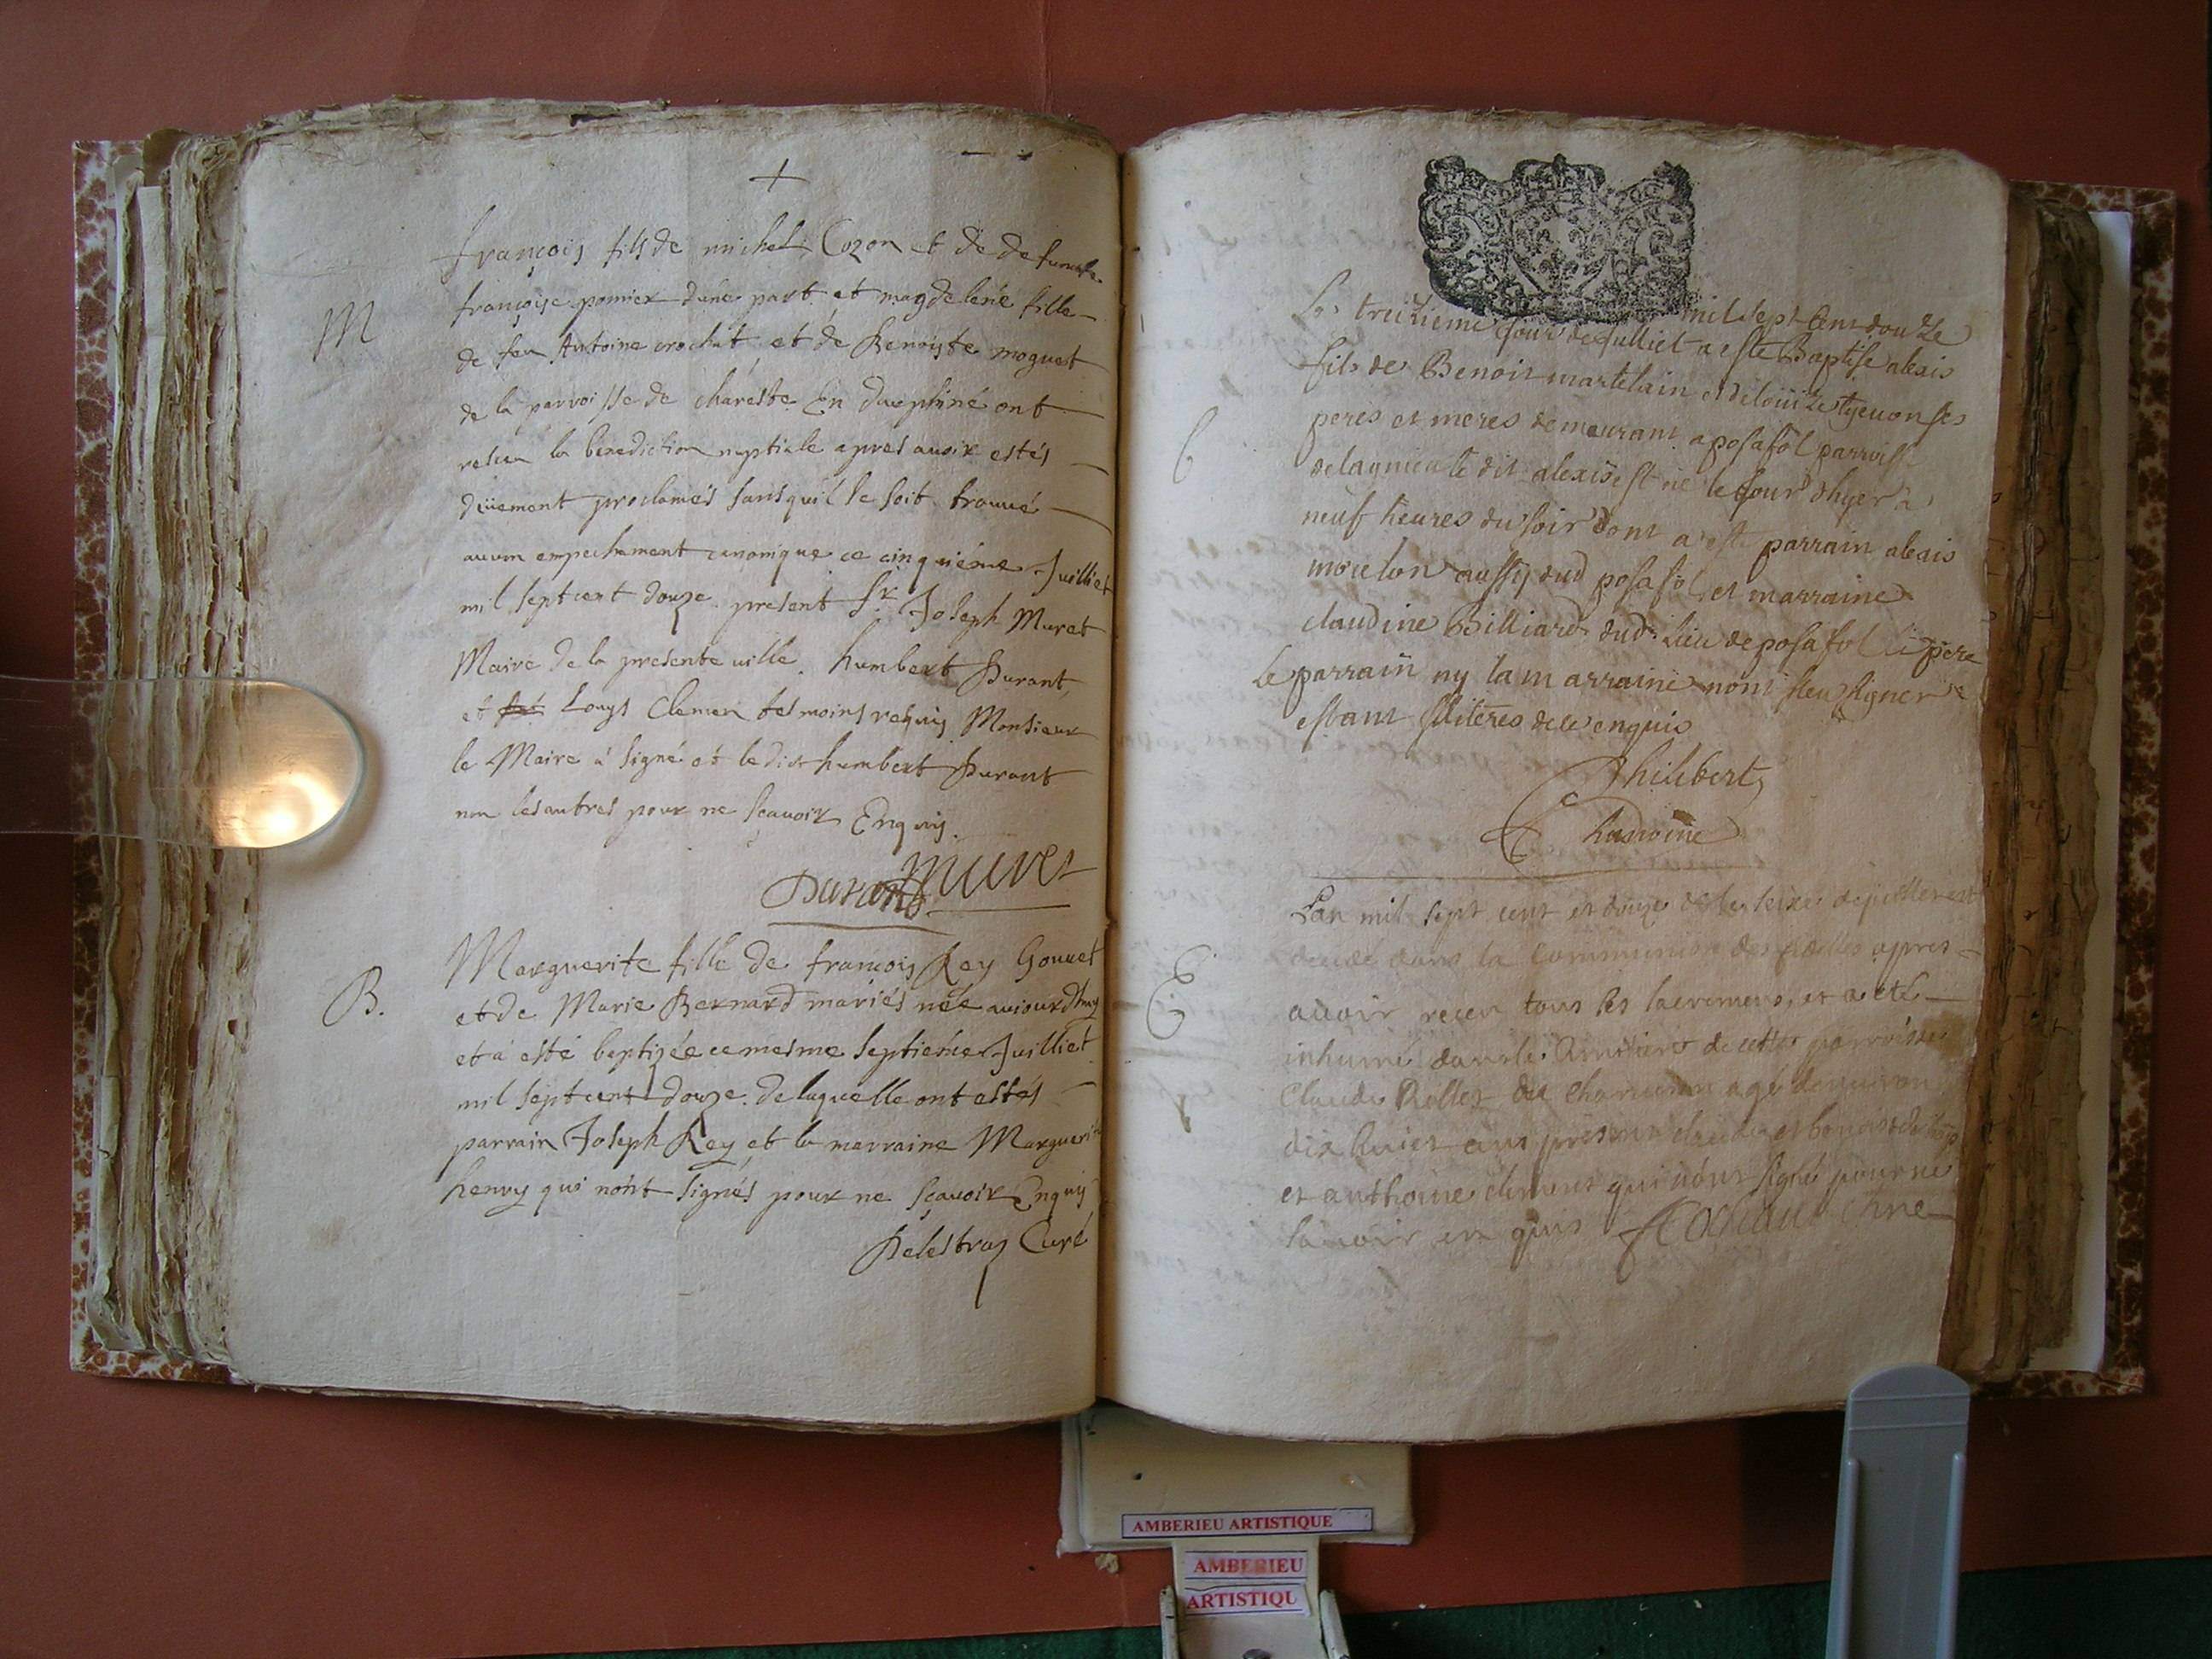 M
françois fils de michel Cozon et de defuncte
françoise pomier dune part et magdelene fille
de feu Antoine crochat et de Benoiste moguet
de la parroisse de chareste En dauphiné ont
receu la benediction nuptiale apres auoir estés
düement proclamés sans quil se soit trouué
aucun empechement canonique ce cinquiéme Juilliet
mil sept cent douze present sr Joseph Muret
Maire de la presente uille humbert Durant
et Louys Clemen tesmoins requis Monsieur
le Maire à signé et ledict humbert Durant
non les autres pour ne sçauoir Enquis
Durant Muret
B.
Marguerite fille de françois Rey Gouuet
et de Marie Bernard mariés née auiourdhuy
et à esté baptizée ce mesme septieme Juilliet
mil sept cent douze de laquelle ont estés
parrain Joseph Rey et la marraine Marguerite
henry qui nont signés pour ne sçauoir Enquis
Delestraz Curé
Le treizieme jour de Julliet mil sept cens douze
a este Baptise alexis
fils de Benoit martelain et de louize ses
peres et meres demeurant a posafol parroisse
de lagnieu le dit alexis est né le jour dhyer a
neuf heures du soir dont a este parrain alexis
moulon aussy dud posafol et marraine
claudine Billiard dud lieu de posafol le pere
le parrain ny la marraine nont sceu signer
estant illiteres de ce enquis
Philibert
Chanoine
Lan mil sept cent et douze et le seize de juillet est
decedé dans la communion des fidelles apres
auoir receu tous les sacremens, et a eté
inhumé dans le cimetiere de cette parroisse
Claude Rollet de agé denuiron
dix huict ans presens claude et benoist
et anthoine clement qui nont signé pour ne
sauoir en quis
AMBERIEU ARTISTIQUE
AMBERIEU
ARTISTIQU